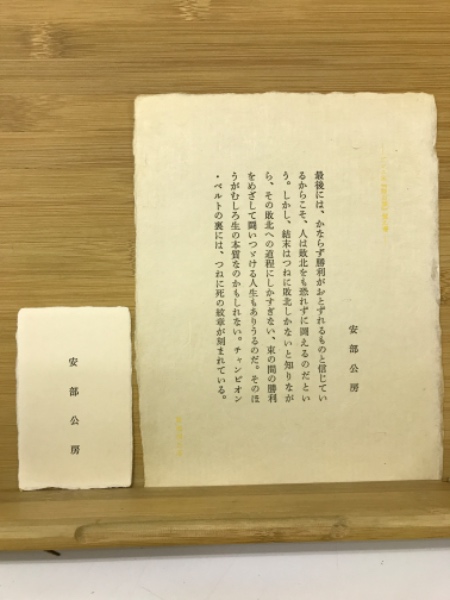 安部公房
最後には、かならず勝利がおとずれるものと信じてい
るからこそ、人は敗北をも恐れずに闘えるのだとい
う。しかし、結末はつねに敗北しかないと知りなが
ら、その敗北への道程にしかすぎない、束の間の勝利
をめざして闘いつゞける人生もありうるのだ。そのほ
うがむしろ生の本質なのかもしれない。チャンピオン
・ベルトの裏には、つねに死の紋章が刻まれている。
安部公房